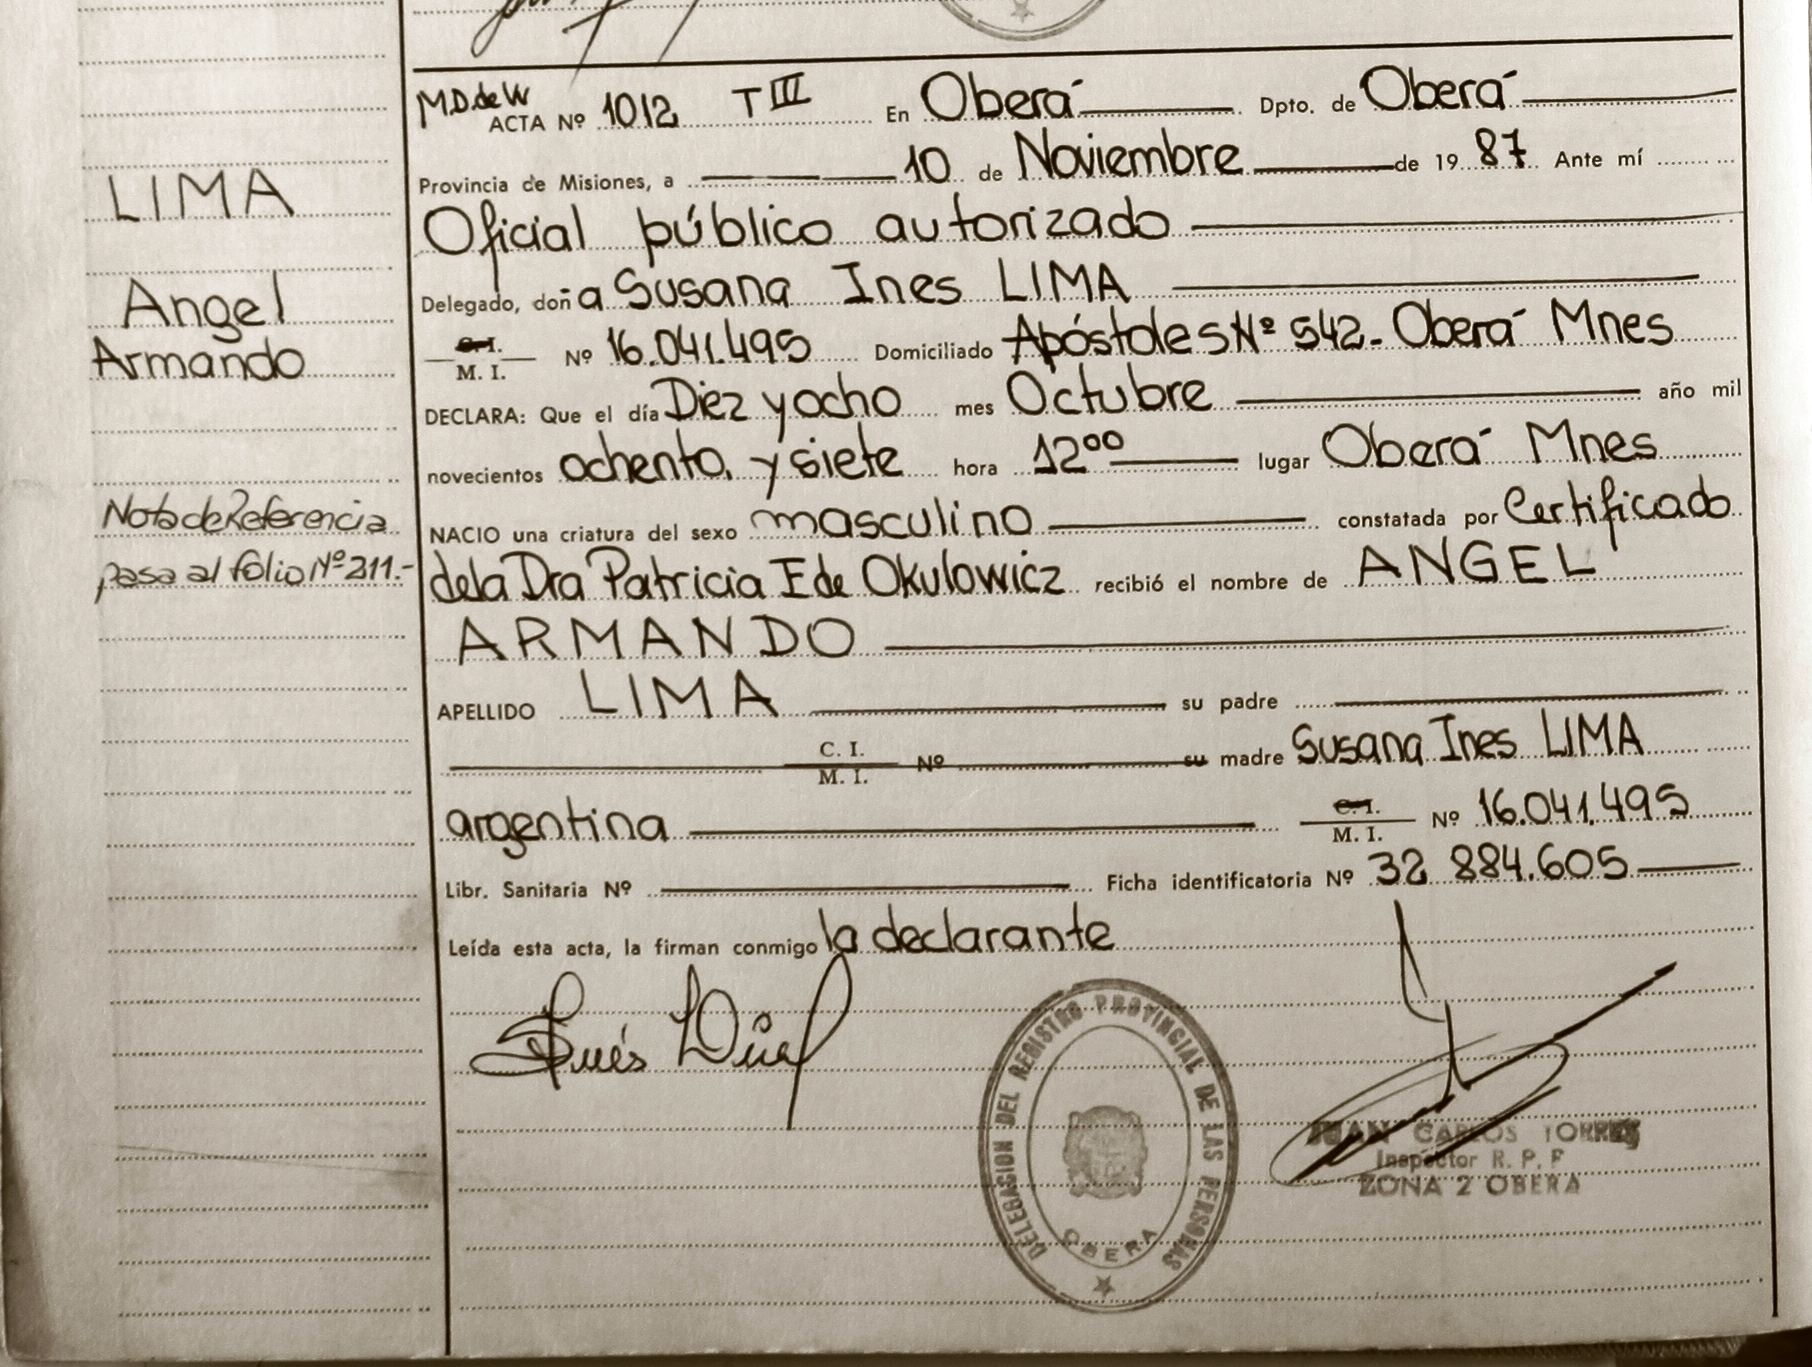 LIMA
Angel
Armando
Nota de Referencia
pasa al folio Nº 211.-
M.D. de W
ACTA Nº 1012 T III En Oberá Dpto. de Oberá
Provincia de Misiones, a 10 de Noviembre de 1987 Ante mí
Oficial público autorizado
Delegado, doña Susana Ines LIMA
C. I.
M. I. Nº 16.041.495 Domiciliado Apóstoles Nº 542- Oberá Mnes
DECLARA: Que el día Diez y ocho mes Octubre año mil
novecientos ochenta y siete hora 12⁰⁰ lugar Oberá Mnes
NACIO una criatura del sexo masculino constatada por Certificado
de la Dra Patricia E de Okulowicz recibió el nombre de ANGEL
ARMANDO
APELLIDO LIMA su padre
C. I.
M. I. Nº su madre Susana Ines LIMA
argentina C. I.
M. I. Nº 16.041.495
Libr. Sanitaria Nº Ficha identificatoria Nº 32 884.605
Leída esta acta, la firman conmigo la declarante
DELEGASION DEL REGISTRO PROVINCIAL DE LAS PERSONAS
OBERA
JUAN CARLOS TORRES
Inspector R. P. P
ZONA 2 OBERA